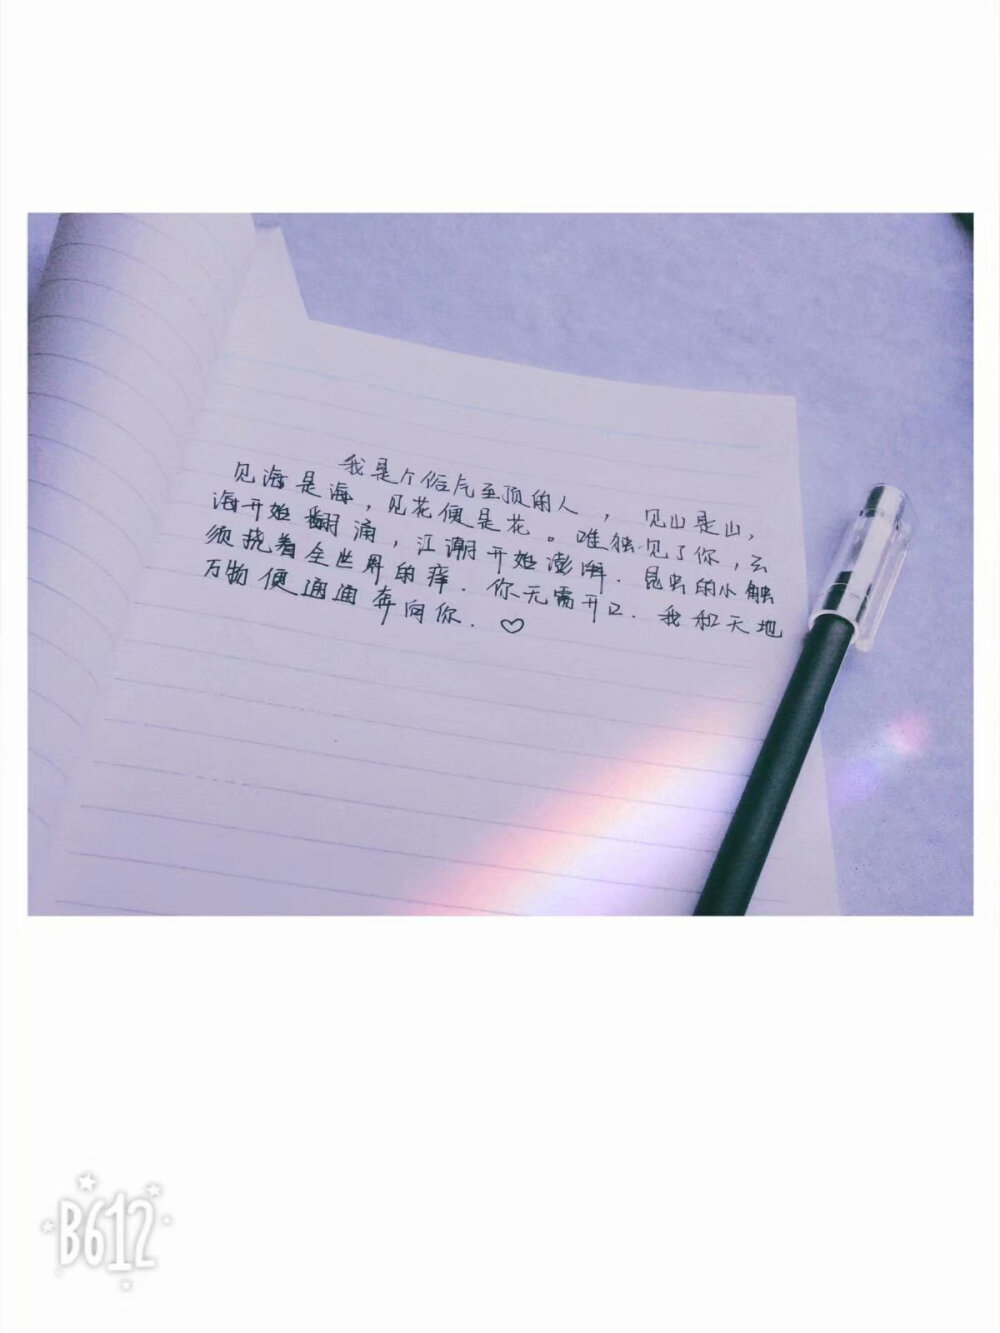 我是个俗气至顶的人，见山是山，
见海是海，见花便是花。唯独见了你，云
海开始翻涌，江潮开始澎湃．昆虫的小触
须挠着全世界的痒．你无需开口．我和天地
万物便通通奔向你．♡
B612